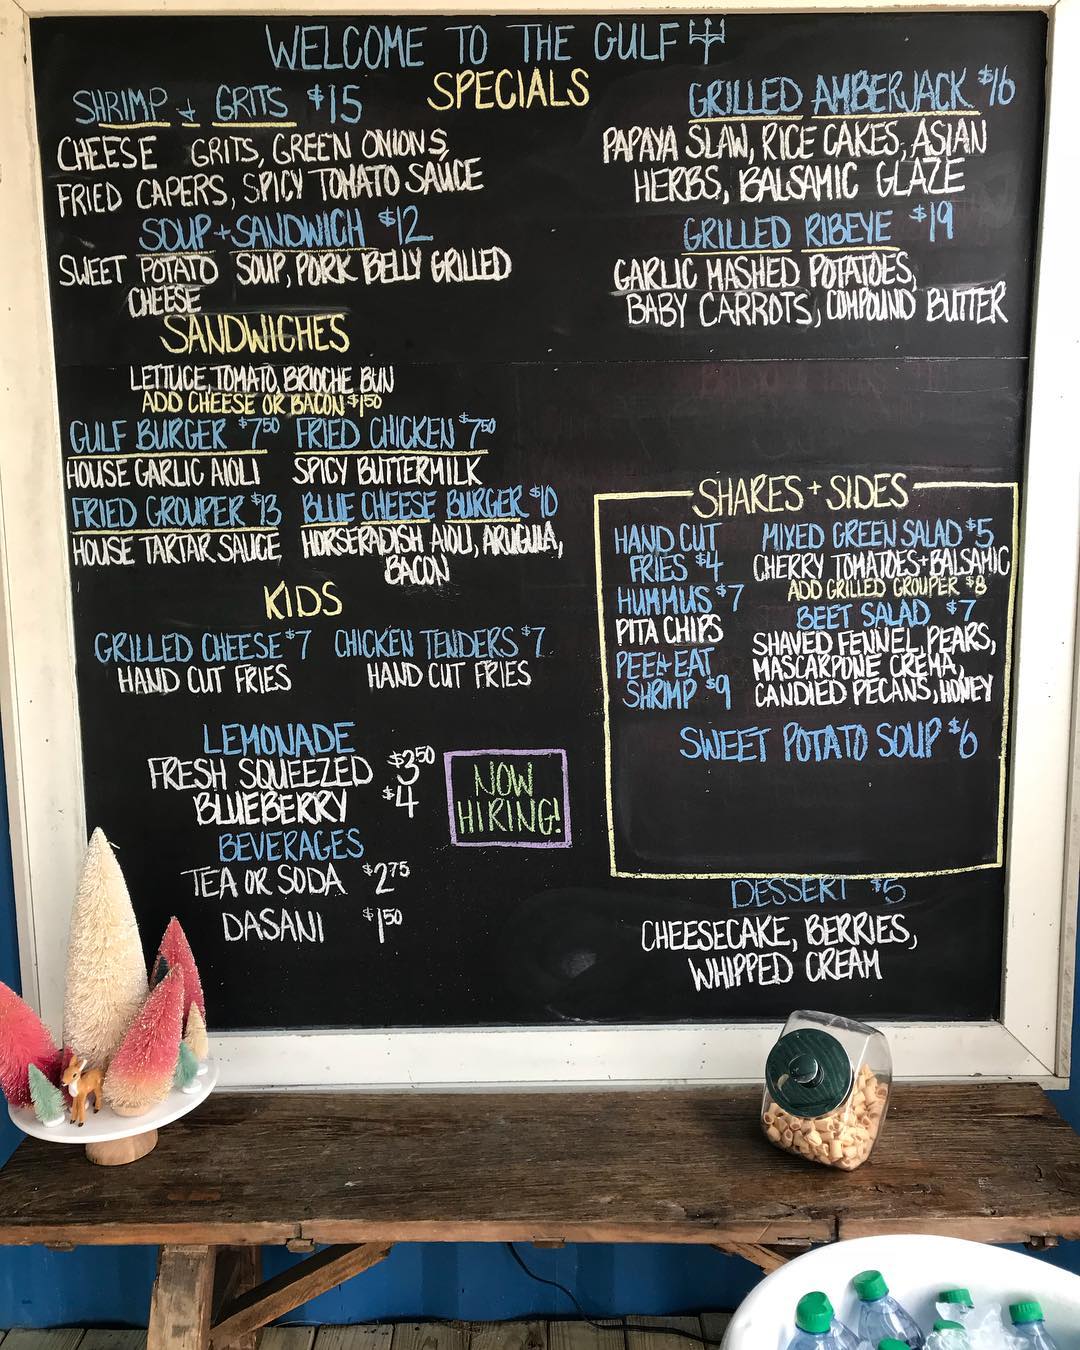 WELCOME TO THE GULF
SPECIALS
SHRIMP + GRITS $15
CHEESE GRITS, GREEN ONIONS,
FRIED CAPERS, SPICY TOMATO SAUCE
SOUP + SANDWICH $12
SWEET POTATO SOUP, PORK BELLY GRILLED
CHEESE
GRILLED AMBERJACK $16
PAPAYA SLAW, RICE CAKES, ASIAN
HERBS, BALSAMIC GLAZE
GRILLED RIBEYE $19
GARLIC MASHED POTATOES,
BABY CARROTS, COMPOUND BUTTER
SANDWICHES
LETTUCE, TOMATO, BRIOCHE BUN
ADD CHEESE OR BACON $1.50
GULF BURGER $7.50
HOUSE GARLIC AIOLI
FRIED CHICKEN $7.50
SPICY BUTTERMILK
FRIED GROUPER $13
HOUSE TARTAR SAUCE
BLUE CHEESE BURGER $10
HORSERADISH AIOLI, ARUGULA,
BACON
KIDS
GRILLED CHEESE $7
HAND CUT FRIES
CHICKEN TENDERS $7
HAND CUT FRIES
LEMONADE
FRESH SQUEEZED $3.50
BLUEBERRY $4
BEVERAGES
TEA OR SODA $2.75
DASANI $1.50
NOW
HIRING!
SHARES + SIDES
HAND CUT
FRIES $4
HUMMUS $7
PITA CHIPS
PEEL + EAT
SHRIMP $9
MIXED GREEN SALAD $5
CHERRY TOMATOES + BALSAMIC
ADD GRILLED GROUPER $8
BEET SALAD $7
SHAVED FENNEL, PEARS,
MASCARPONE CREMA,
CANDIED PECANS, HONEY
SWEET POTATO SOUP $6
DESSERT $5
CHEESECAKE, BERRIES,
WHIPPED CREAM